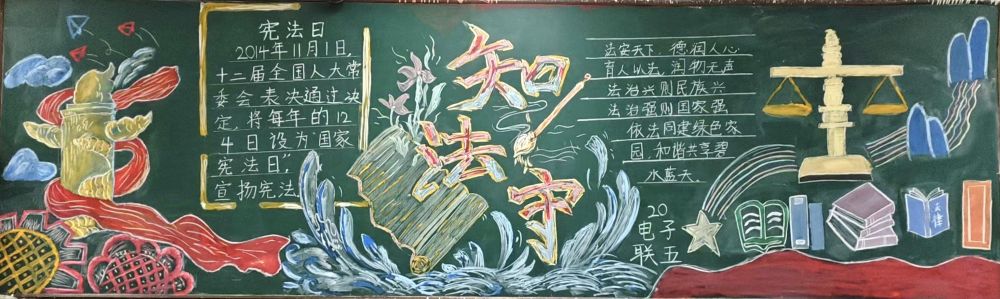 宪法日
2014年11月1日,
十二届全国人大常
委会表决通过决
定,将每年的12
4日设为"国家
宪法日",
宣扬宪法
知
法
守
法安天下、德润人心
育人以法、润物无声
法治兴则民族兴
法治强则国家强
依法同建绿色家
园,和谐共享碧
水蓝天.
20
电子
联五